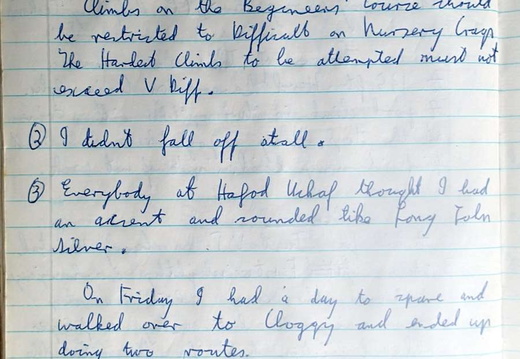 Climbs on the Begineers' Course should
be restricted to Difficult on Nursery Crags
The Hardest Climb to be attempted must not
exceed V Diff.
② I didnt fall off atall.
③ Everybody at Hafod Uchaf thought I had
an accent and sounded like Long John
Silver.
On Friday I had a day to spare and
walked over to Cloggy and ended up
doing two routes.